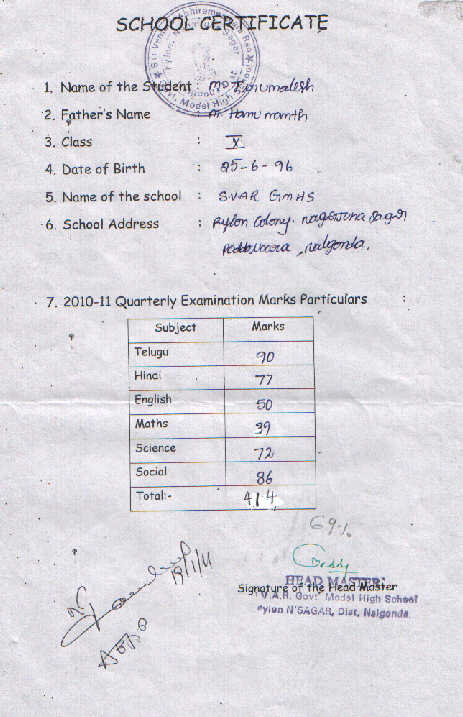 SCHOOL CERTIFICATE
1. Name of the Student : M.D Tirumalesh
2. Father's Name :
3. Class : X
4. Date of Birth : 25-6-96
5. Name of the school : S.V.A.R GMHS
6. School Address : Pylon Colony. nagarjuna Sagar
Peddavoora, nalgonda.
7. 2010-11 Quarterly Examination Marks Particulars :
Subject Marks
Telugu 90
Hindi 77
English 50
Maths 39
Science 72
Social 86
Total:- 414
69%
19/1/11
HEAD MASTER
Signature of the Head Master
V.A.R. Govt. Model High School
Pylon N'SAGAR, Dist, Nalgonda.